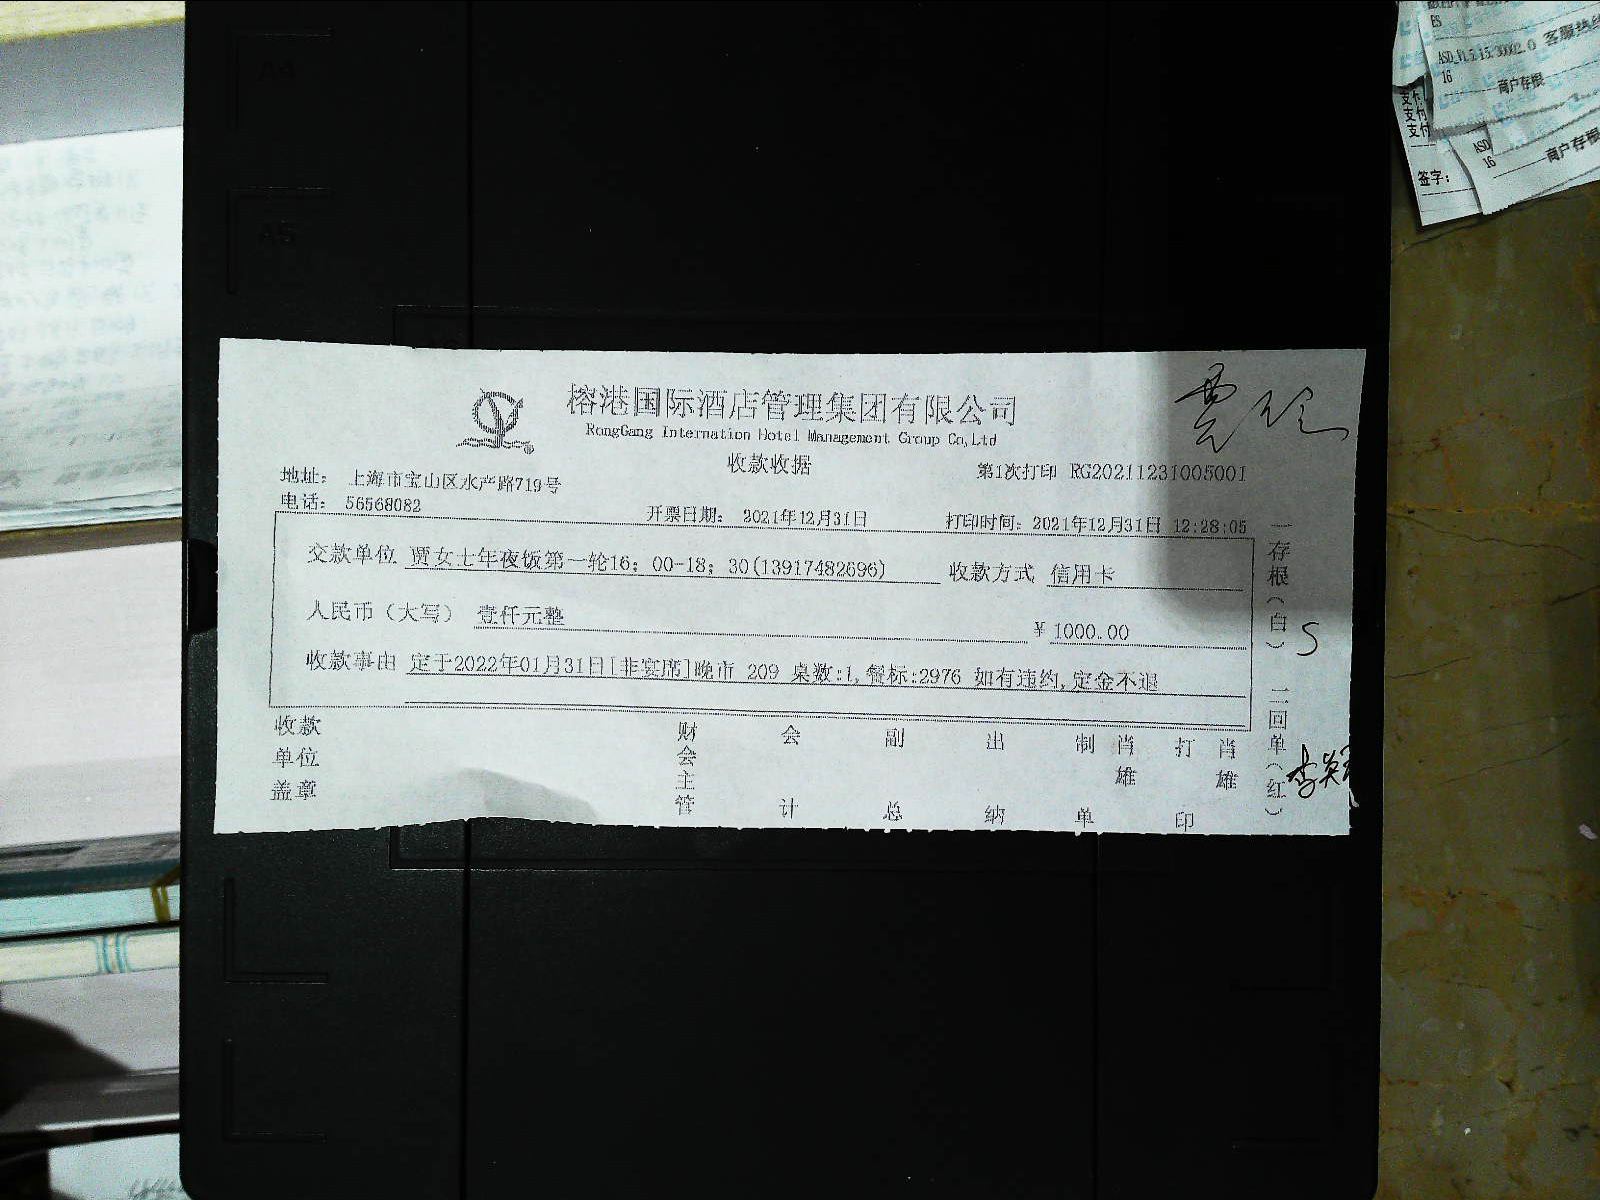 榕港国际酒店管理集团有限公司
RongGang Internation Hotel Management Group Co,Ltd
收款收据
第1次打印 RG20211231005001
地址: 上海市宝山区水产路719号
电话: 56568082
开票日期: 2021年12月31日
打印时间: 2021年12月31日 12:28:05
交款单位 贾女士年夜饭第一轮16; 00-18; 30(13917482696)
收款方式 信用卡
人民币(大写) 壹仟元整
¥ 1000.00
收款事由 定于2022年01月31日[非宴席]晚市 209 桌数:1,餐标:2976 如有违约,定金不退
收款单位盖章
财会主管
会计
副总
出纳
制单
肖雄
打印
肖雄
一存根(白)
二回单(红)
S
ES
ASD_V1.5.15.30002.0 客服热线
16
商户存根
支付
支付
支付
签字:
ASD
16
商户存根
A4
A5